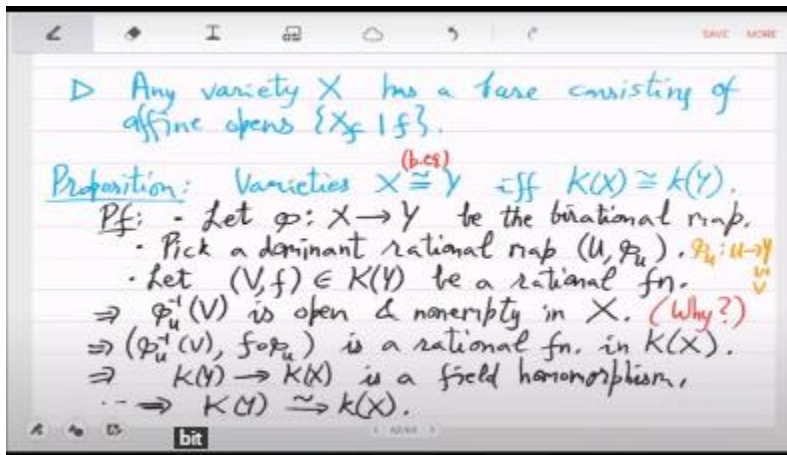 SAVE MORE
▷ Any variety X has a base consisting of
affine opens {X_f | f}.
(b.eq)
Proposition: Varieties X ≅ Y iff K(X) ≅ K(Y).
Pf: - Let φ: X → Y be the birational map.
· Pick a dominant rational map (U, φ_u). φ_u: U → Y
· Let (V, f) ∈ K(Y) be a rational fn.
⇒ φ_u^{-1}(V) is open & nonempty in X. (Why?)
⇒ (φ_u^{-1}(V), f∘φ_u) is a rational fn. in K(X).
⇒ K(Y) → K(X) is a field homomorphism.
··⇒ K(Y) ⥲ K(X).
bit